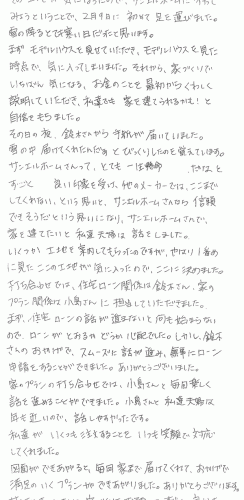 みようということで、2月9日に 初めて 足を運びました。
雪の降るとても寒い日だったと思います。
まず モデルハウスを見せていただき、モデルハウスを見た
時点で、気に入ってしまいました。それから、家づくりで
いちばん 気になる、お金のことを 最初からくわしく
説明していただき、私達でも 家を建てられるかも! と
自信をもちました。
その日の夜、鈴木さんから 手紙が 届いていました。
雪の中 届けてくれたんだぁ とびっくりしたのを覚えています。
サンエルホームさんって、とても 一生懸命 だなぁ、と
すごく 良い印象を受け、他のメーカーでは、ここまで
してくれない、という思いと、サンエルホームさんなら 信頼
できそうだという思いになり、サンエルホームさんで、
家を 建てたいと 私達 夫婦は 話をしました。
いくつか 土地を 案内してもらったのですが、やはり 1番め
に見た ここの土地が 気に入ったので、ここに 決めました。
打ち合わせでは、住宅ローン関係は 鈴木さん、家の
プラン関係は 小島さんに 担当していただきました。
まず、住宅 ローンの話が 進まないと 何も始まらない
ので、ローンが とおるか どうか 心配でした。しかし、鈴木
さんの おかげで、スムーズに 話が 進み、無事に ローン
申請をすることができました。ありがとうございました。
家のプランの打ち合わせでは、小島さんと 毎回楽しく
話を 進めることができました。小島さんと 私達夫婦は
年も 近いので、話しやすかったです。
私達が いくつも 注文することを いつも 笑顔で 対応
してくれました。
図面が できあがると、毎回 家まで 届けてくれて、おかげで
満足の いく プランが できあがりました。ありがとうございます。